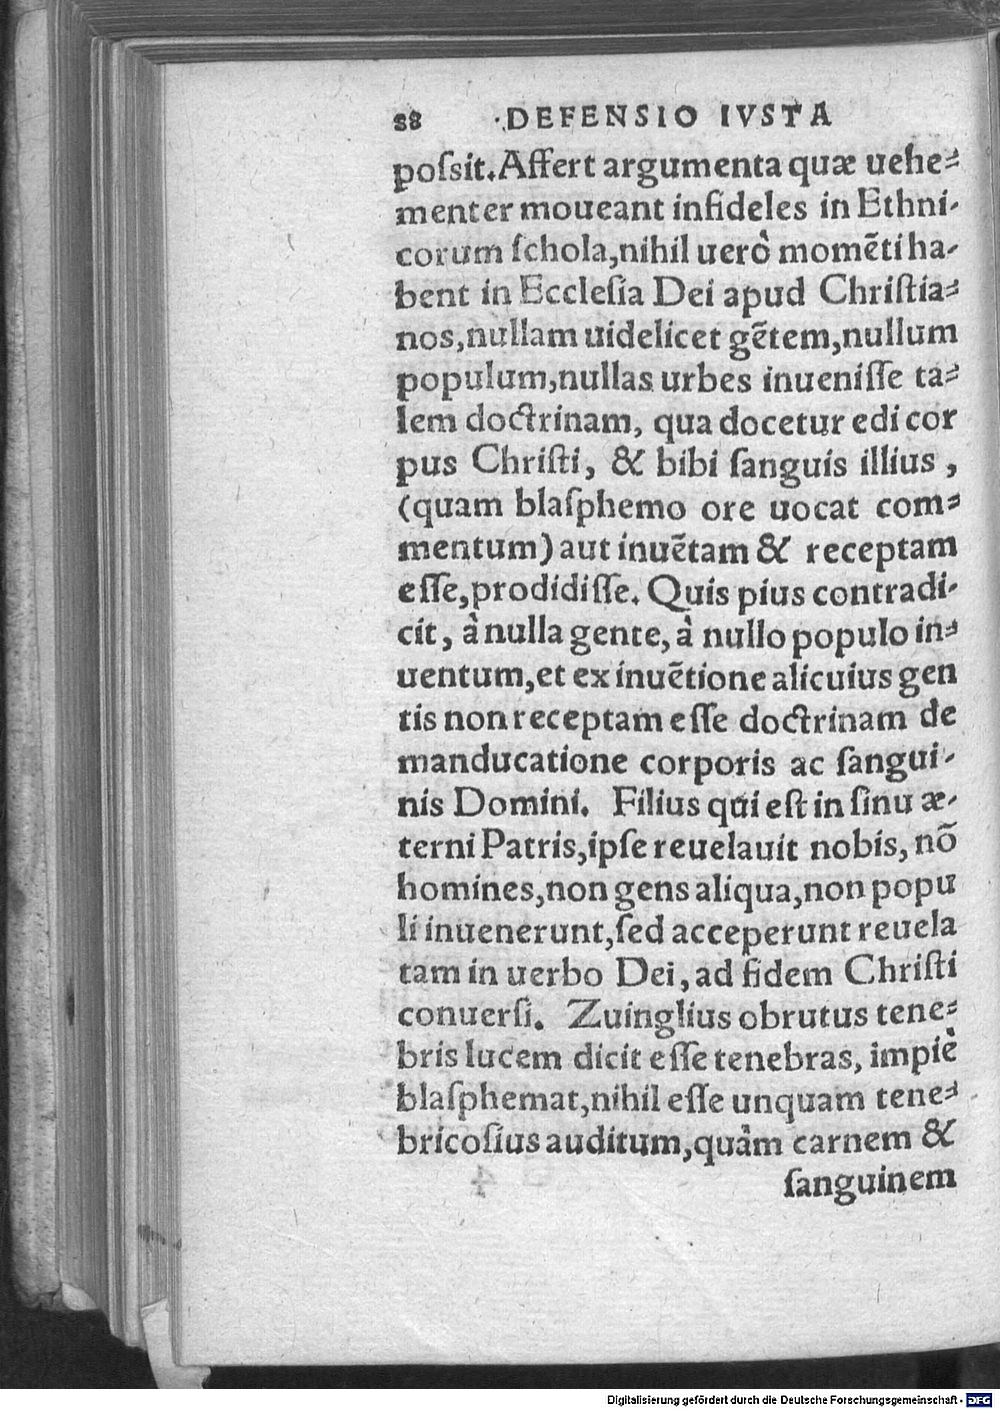 88 DEFENSIO IVSTA
poſsit. Affert argumenta quæ uehe-
menter moueant infideles in Ethni-
corum ſchola, nihil uerò momẽti ha-
bent in Eccleſia Dei apud Chriſtia-
nos, nullam uidelicet gẽtem, nullum
populum, nullas urbes inueniſſe ta-
lem doctrinam, qua docetur edi cor
pus Chriſti, & bibi ſanguis illius,
(quam blaſphemo ore uocat com-
mentum) aut inuẽtam & receptam
eſſe, prodidiſſe. Quis pius contradi-
cit, à nulla gente, à nullo populo in-
uentum, et ex inuẽtione alicuius gen
tis non receptam eſſe doctrinam de
manducatione corporis ac ſangui-
nis Domini. Filius qui eſt in ſinu æ-
terni Patris, ipſe reuelauit nobis, nõ
homines, non gens aliqua, non popu
li inuenerunt, ſed acceperunt reuela
tam in uerbo Dei, ad fidem Chriſti
conuerſi. Zuinglius obrutus tene-
bris lucem dicit eſſe tenebras, impiè
blaſphemat, nihil eſſe unquam tene-
bricoſius auditum, quàm carnem &
ſanguinem
Digitalisierung gefördert durch die Deutsche Forschungsgemeinschaft - DFG